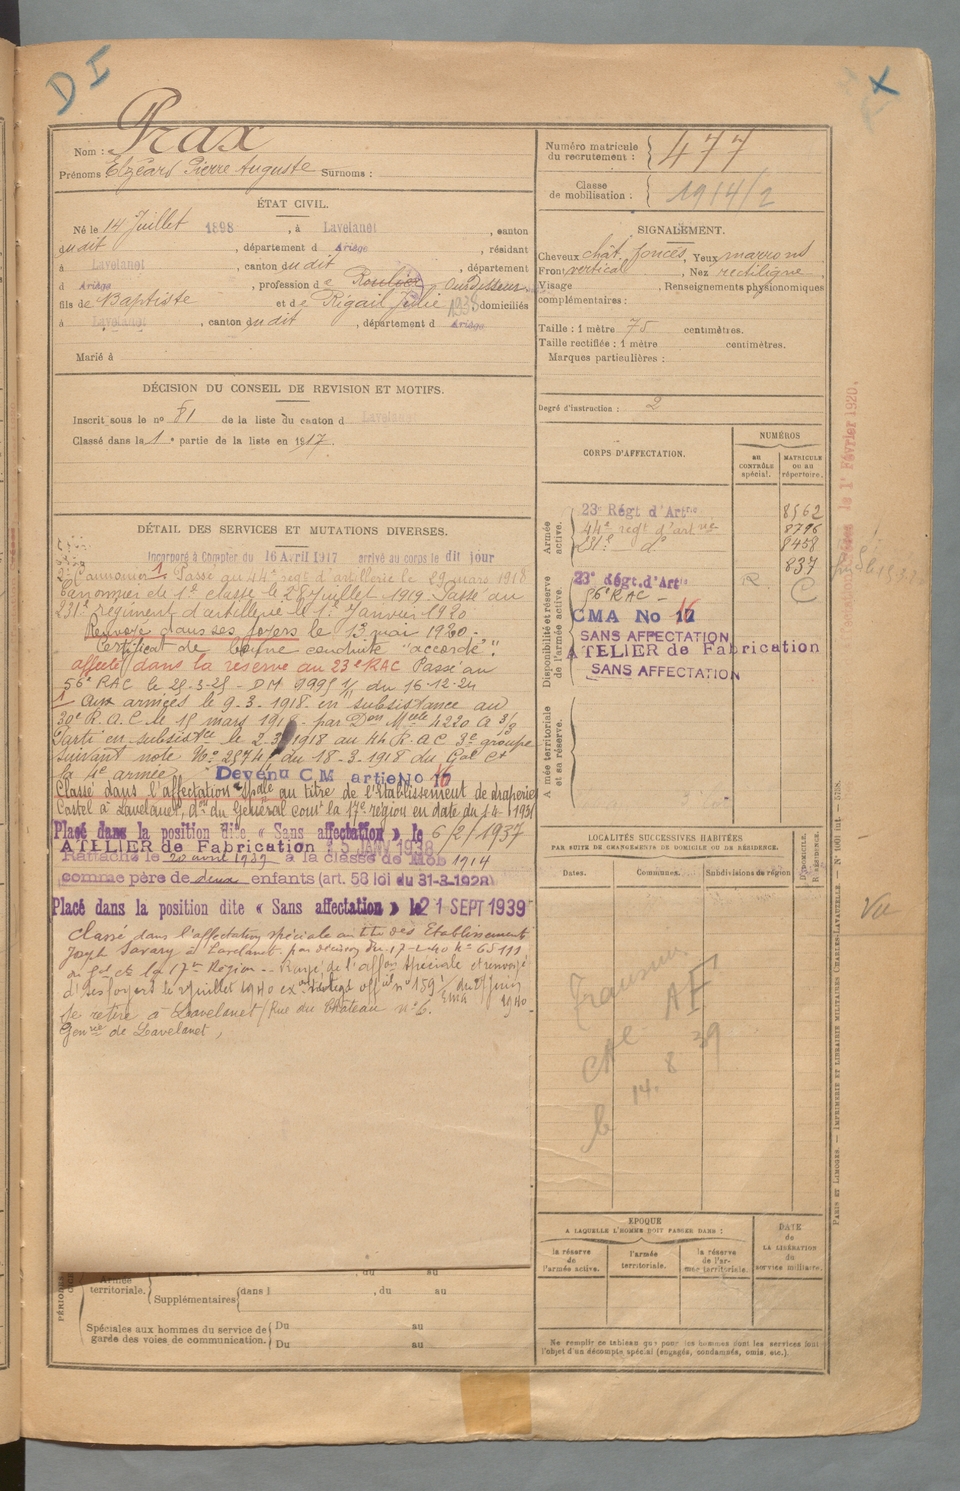 D I
X
Nom : Prax
Prénoms Elzéard Pierre Auguste Surnoms :
Numéro matricule du recrutement : 477
Classe de mobilisation : 1914/2
ÉTAT CIVIL.
Né le 14 Juillet 1898, à Lavelanet, canton
dudit, département d Ariège, résidant
à Lavelanet, canton dudit, département
d Ariège, profession de Roulier Ourdisseur
fils de Baptiste et de Rigail Julie 1938 domiciliés
à Lavelanet, canton dudit, département d Ariège
Marié à
SIGNALEMENT.
Cheveux chât. foncés, Yeux marrons
Front vertical, Nez rectiligne
Visage , Renseignements physionomiques
complémentaires :
Taille : 1 mètre 75 centimètres.
Taille rectifiée : 1 mètre centimètres.
Marques particulières :
Degré d'instruction : 2
DÉCISION DU CONSEIL DE REVISION ET MOTIFS.
Inscrit sous le no 81 de la liste du canton d Lavelanet
Classé dans la 1e partie de la liste en 1917.
DÉTAIL DES SERVICES ET MUTATIONS DIVERSES.
Incorporé à Compter du 16 Avril 1917 arrivé au corps le dit jour
2e Cannonier 1 Passé au 44e régt d'artillerie le 29 mars 1918
Canonnier de 1e classe le 28 Juillet 1919. Passé au
231e régiment d'artillerie le 1er Janvier 1920
Renvoyé dans ses foyers le 13 mai 1920.
Certificat de bonne conduite "accordé".
affecté dans la réserve au 23e RAC Passé au
56e RAC le 25-3-25 - DM 9995 1/11 du 16-12-24
1 Aux armées le 9-3-1918 en subsistance au
30e R.A.C. le 15 mars 1918 par Don Melle 4220 A 3/3
Parti en subsistce le 2-3 1918 au 44 R.A.C 3e groupe
suivant note No 2574/ du 18-3-1918 du Gal Ct
la 4e armée. Devenu C M artie No 16
Classé dans l'affectation spale au titre de l'Etablissement de draperies
Castel à Lavelanet, don du Général comt la 17e région en date du 14 1931
Placé dans la position dite, « Sans affectation » le 6/2/1937
ATELIER de Fabrication 15 JANV 1938
Rattaché le 20 avril 1939 à la classe de Mob 1914
comme père de deux enfants (art. 58 loi du 31-3-1928)
Placé dans la position dite « Sans affectation » le 21 SEPT 1939
Classé dans l'affectation spéciale au titre des Etablissement
Joseph Savary à Lavelanet par décision du 17-2-40 No 65111
du Gal ct la 17e Région -- Rayé de l'affon spéciale et renvoyé
d ses foyers le 2 Juillet 1940 off no 159 1/EMA du 27 juin 1940
Se retire à Lavelanet, Rue du Château no 6.
Genrie de Lavelanet,
CORPS D'AFFECTATION.
NUMÉROS
au CONTRÔLE spécial.
MATRICULE OU AU répertoire.
Armée active.
23e Régt d'Artie 8562
44e régt d'artie 8796
231e do 8458
837
Disponibilité et réserve de l'armée active.
23e Régt. d'Artie R C
56e RAC -
CMA No 16
SANS AFFECTATION
ATELIER de Fabrication
SANS AFFECTATION
Armée territoriale et sa réserve.
LOCALITÉS SUCCESSIVES HABITÉES
PAR SUITE DE CHANGEMENTS DE DOMICILE OU DE RÉSIDENCE.
Dates. Communes. Subdivisions de région
D. DOMICILE. R. RÉSIDENCE.
AF
le 14. 8 39
EPOQUE
A LAQUELLE L'HOMME DOIT PASSER DANS :
la réserve de l'armée active.
l'armée territoriale.
la réserve de l'armée territoriale.
DATE de LA LIBÉRATION du service militaire.
Ne remplir ce tableau que pour les hommes dont les services font
l'objet d'un décompte spécial (engagés, condamnés, omis, etc.).
PÉRIODES
Armée territoriale.
Supplémentaires dans l , du au
Spéciales aux hommes du service de garde des voies de communication.
Du au
Du au
le 1r Février 1920.
Vu
PARIS ET LIMOGES. — IMPRIMERIE ET LIBRAIRIE MILITAIRES CHARLES-LAVAUZELLE. — No 1001 int. — 578R.